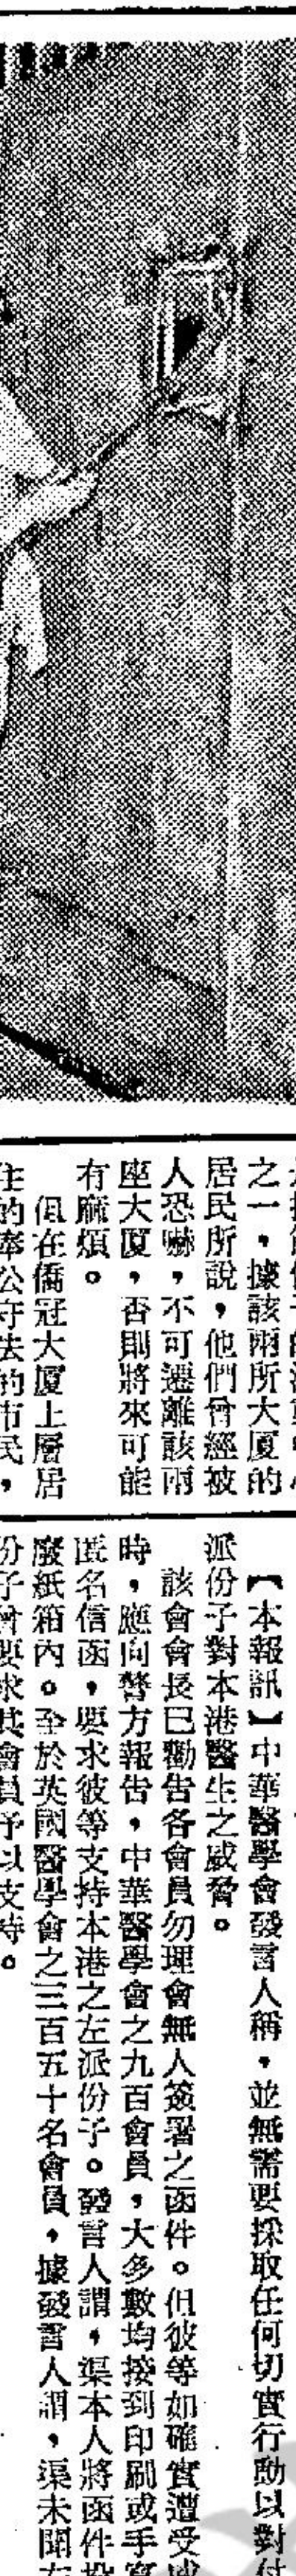 之一，據該兩所大厦的
居民所說，他們曾經被
人恐嚇，不可遷離該兩
座大厦，否則將來可能
有麻煩。
但在僑冠大厦上層居
住的奉公守法的市民，
【本報訊】中華醫學會發言人稱，並無需要採取任何切實行動以對付
派份子對本港醫生之威脅。
該會會長已勸告各會員勿理會無人簽署之函件。但彼等如確實遭受
時，應向警方報告，中華醫學會之九百會員，大多數均接到印刷或手寫
匿名信函，要求彼等支持本港之左派份子。發言人謂，渠本人將函件投
廢紙箱內。至於英國醫學會之三百五十名會員，據發言人謂，渠未聞左
份子曾要求其會員予以支持。